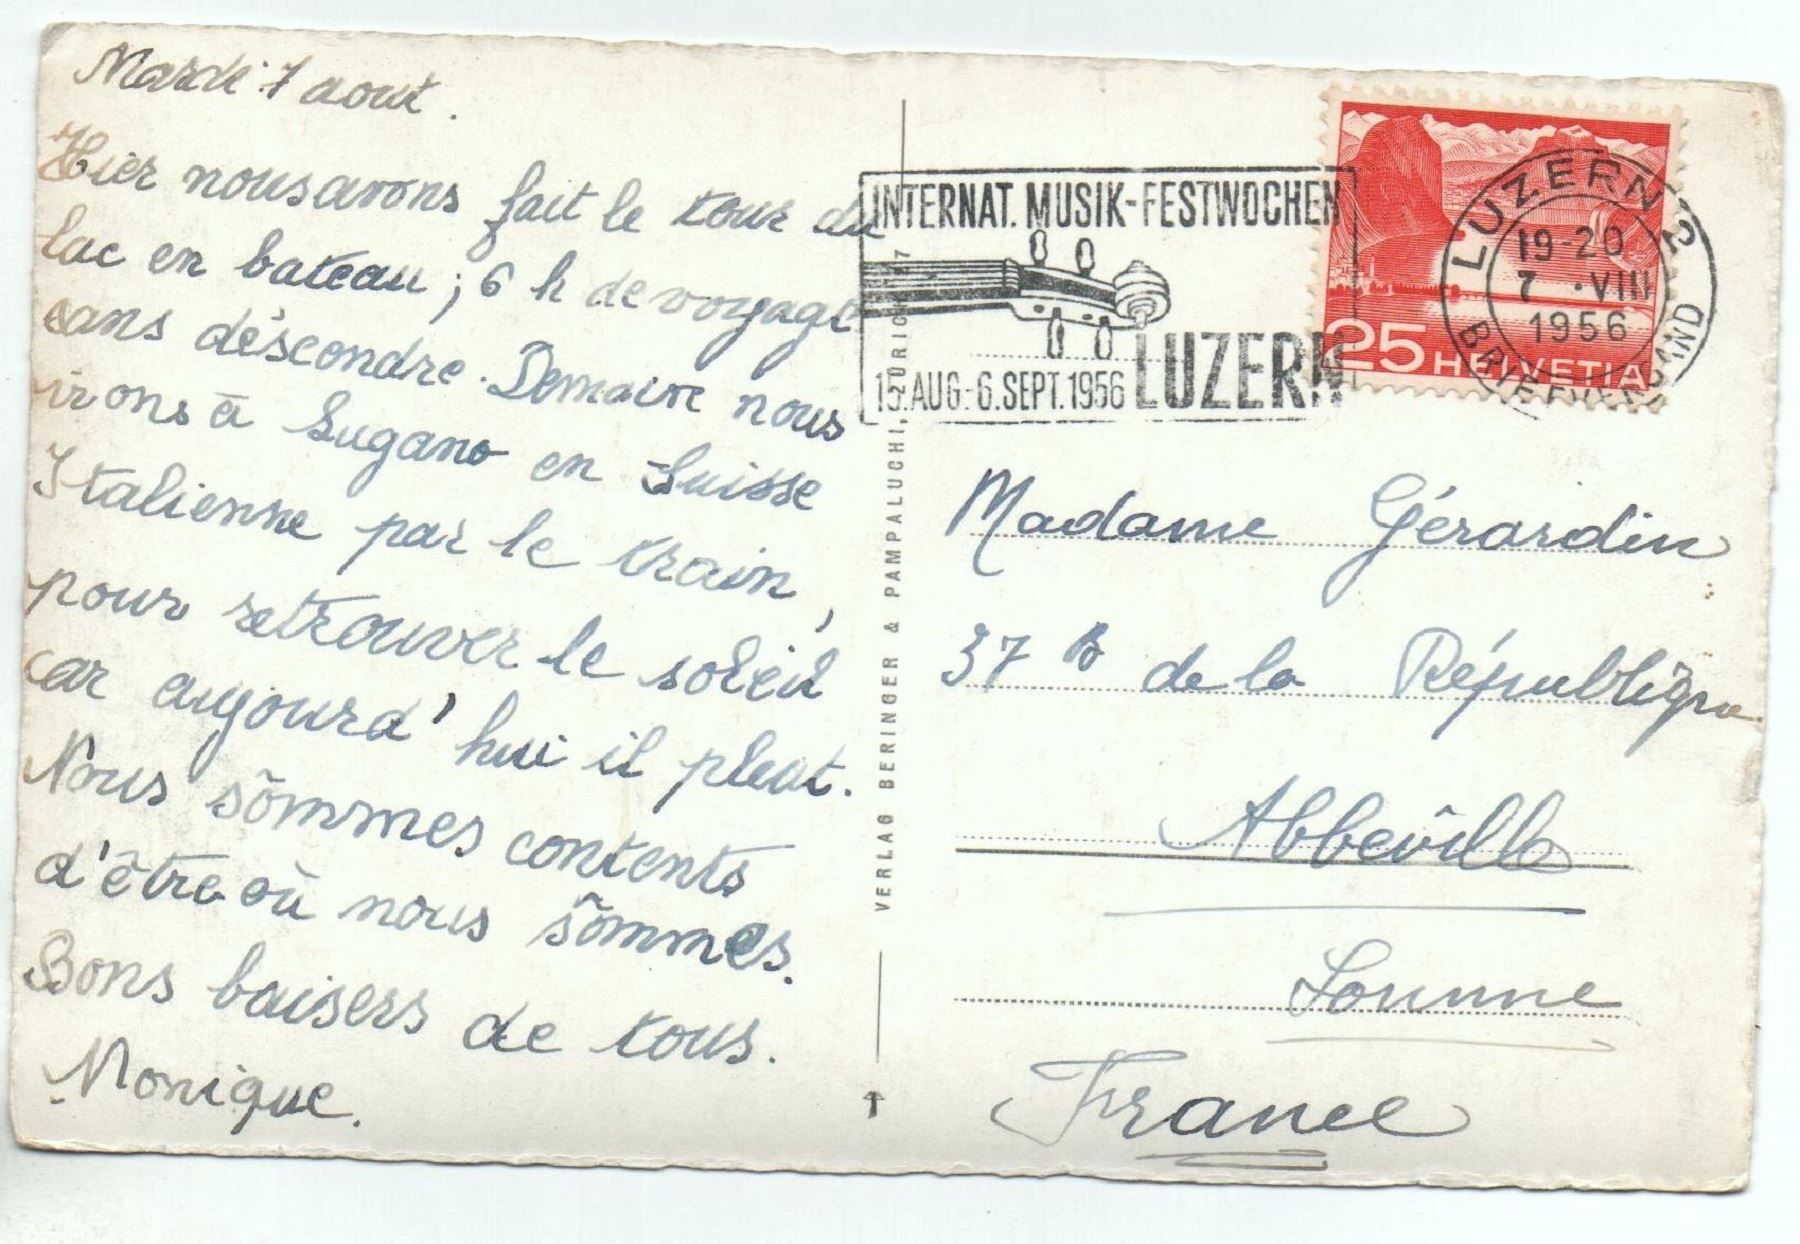 Mardi 7 aout.
Hier nous avons fait le tour du
lac en bateau ; 6 h de voyage
sans déscendre. Demain nous
irons à Lugano en Suisse
Italienne par le train,
pour retrouver le soleil
car aujourd'hui il pleut.
Nous sõmmes contents
d'être où nous sõmmes.
Bons baisers de tous.
Monique.
VERLAG BERINGER & PAMPALUCHI, ZÜRICH 7
INTERNAT. MUSIK-FESTWOCHEN
15. AUG.-6. SEPT. 1956 LUZERN
LUZERN 2
19-20
7 ·VIII
1956
BRIEFVERSAND
25 HELVETIA
Madame Gérardin
37 B de la République
Abbeville
Somme
France